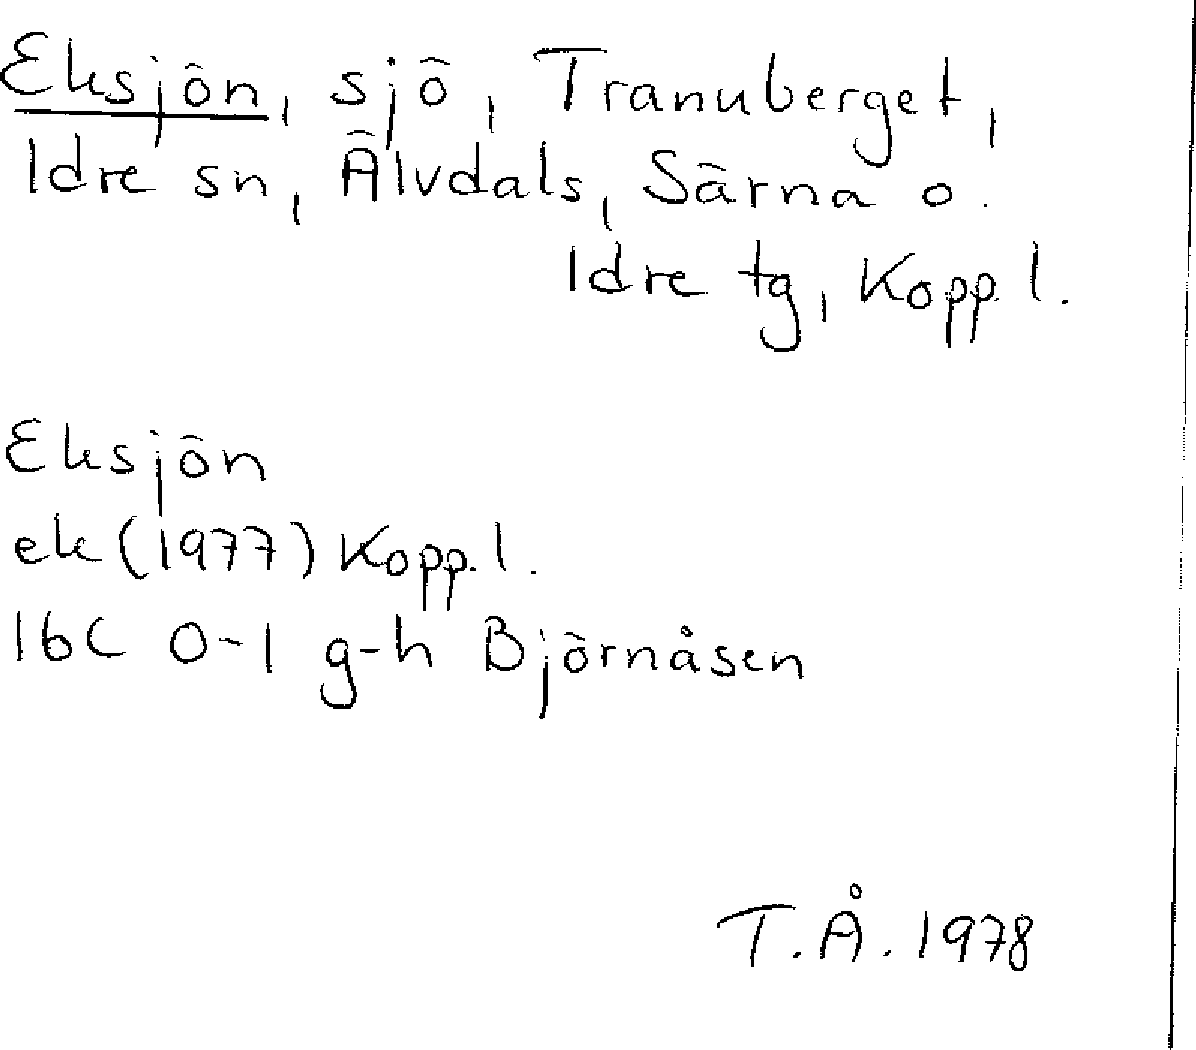 Eksjön, sjö, Tranuberget,
Idre sn, Älvdals, Särna o.
Idre tg, Kopp. l.
Eksjön
ek (1977) Kopp. l.
16C 0-1 g-h Björnåsen
T.Å. 1978